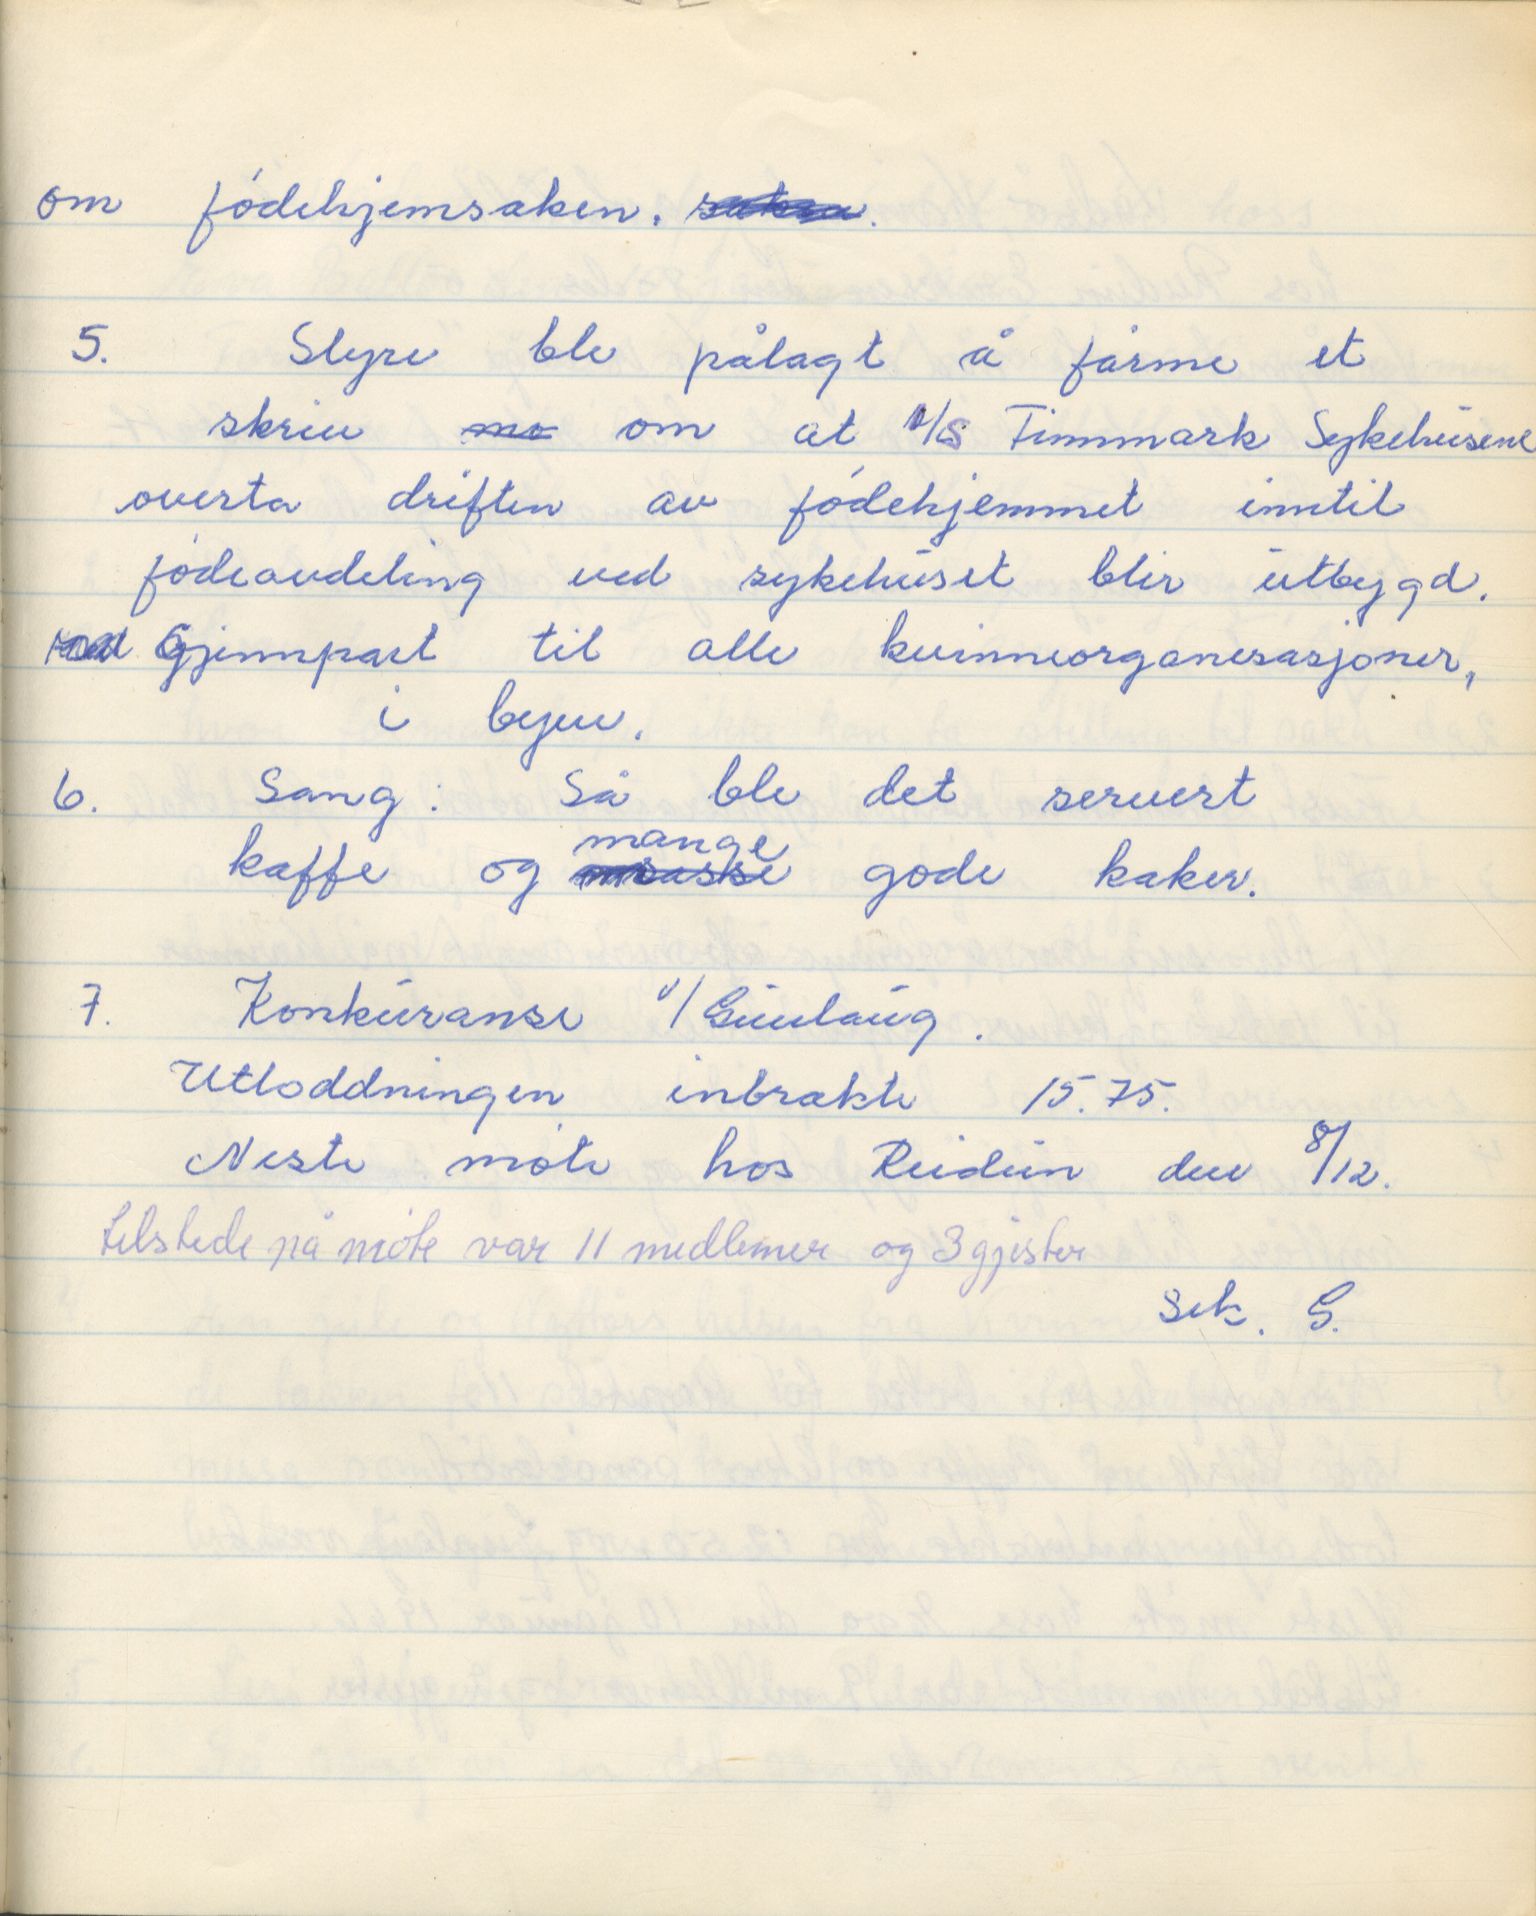 om fødehjemsaken.
5. Styre ble pålagt å fårme et
skriv om at A/S Finnmark Sykehusene
overta driften av fødehjemmet inntil
fødeavdeling ved sykehuset blir utbygd.
Gjennpart til alle kvinneorganisasjoner,
i byen.
6. Sang: Så ble det servert
mange
kaffe og masse gode kaker.
7. Konkuranse v/ Gunlaug.
Utloddningen inbrakte 15.75.
Neste møte hos Reidun den 8/12.
tilstede på møte var 11 medlemer og 3 gjester
Sek. G.